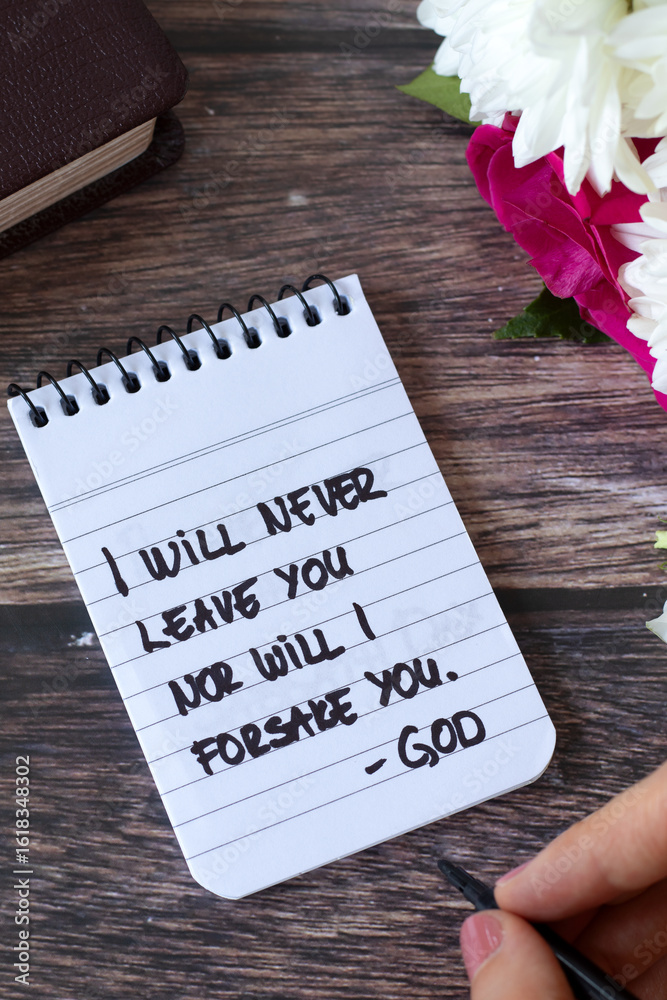 I WILL NEVER
LEAVE YOU
NOR WILL I
FORSAKE YOU.
- GOD
Adobe Stock | #1618348302